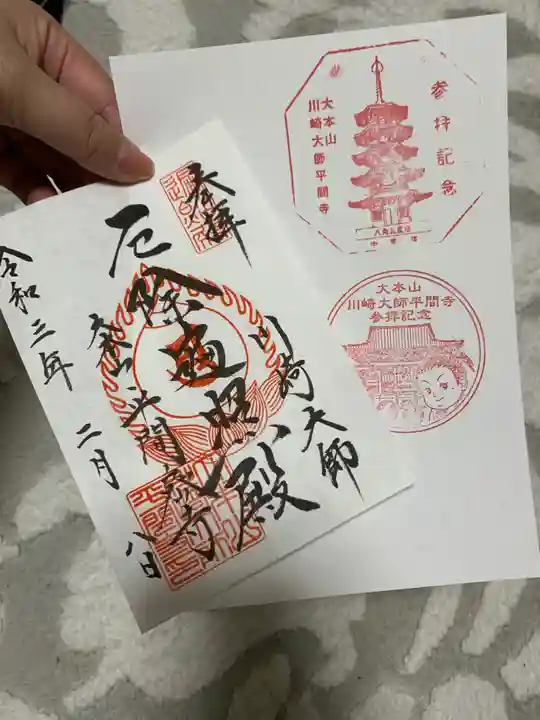 奉拝
川崎大師
厄除遍照殿
大本山平間寺
令和三年 二月 八日
参拝記念
大本山
川崎大師平間寺
八角五重塔
中書塔
大本山
川崎大師平間寺
参拝記念